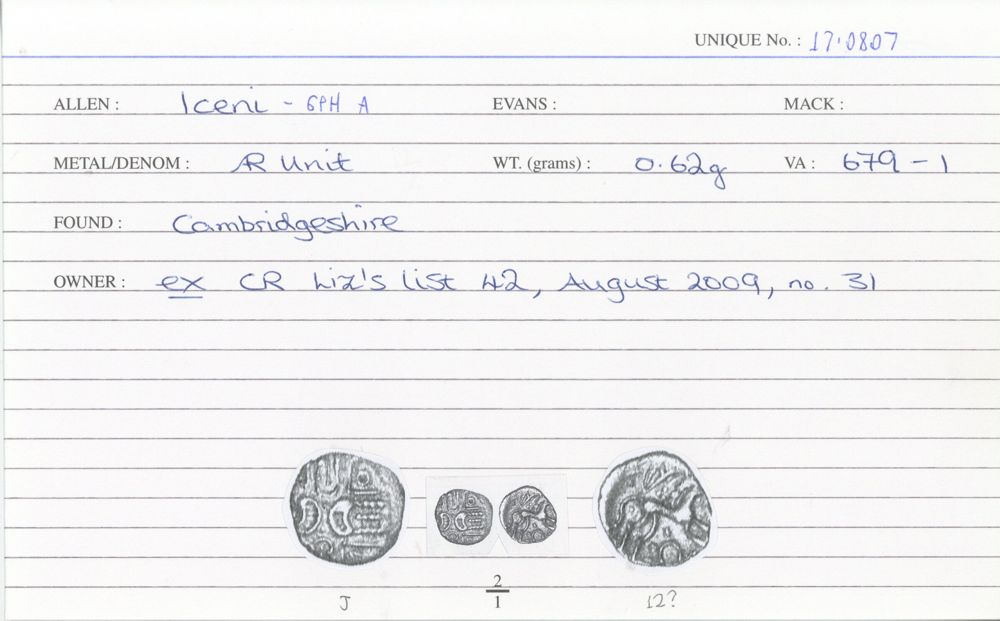 UNIQUE No. : 17.0807
ALLEN : Iceni - GPH A EVANS : MACK :
METAL/DENOM : AR Unit WT. (grams) : 0.62g VA : 679-1
FOUND : Cambridgeshire
OWNER : ex CR Liz's list 42, August 2009, no. 31
2
J 1 12?